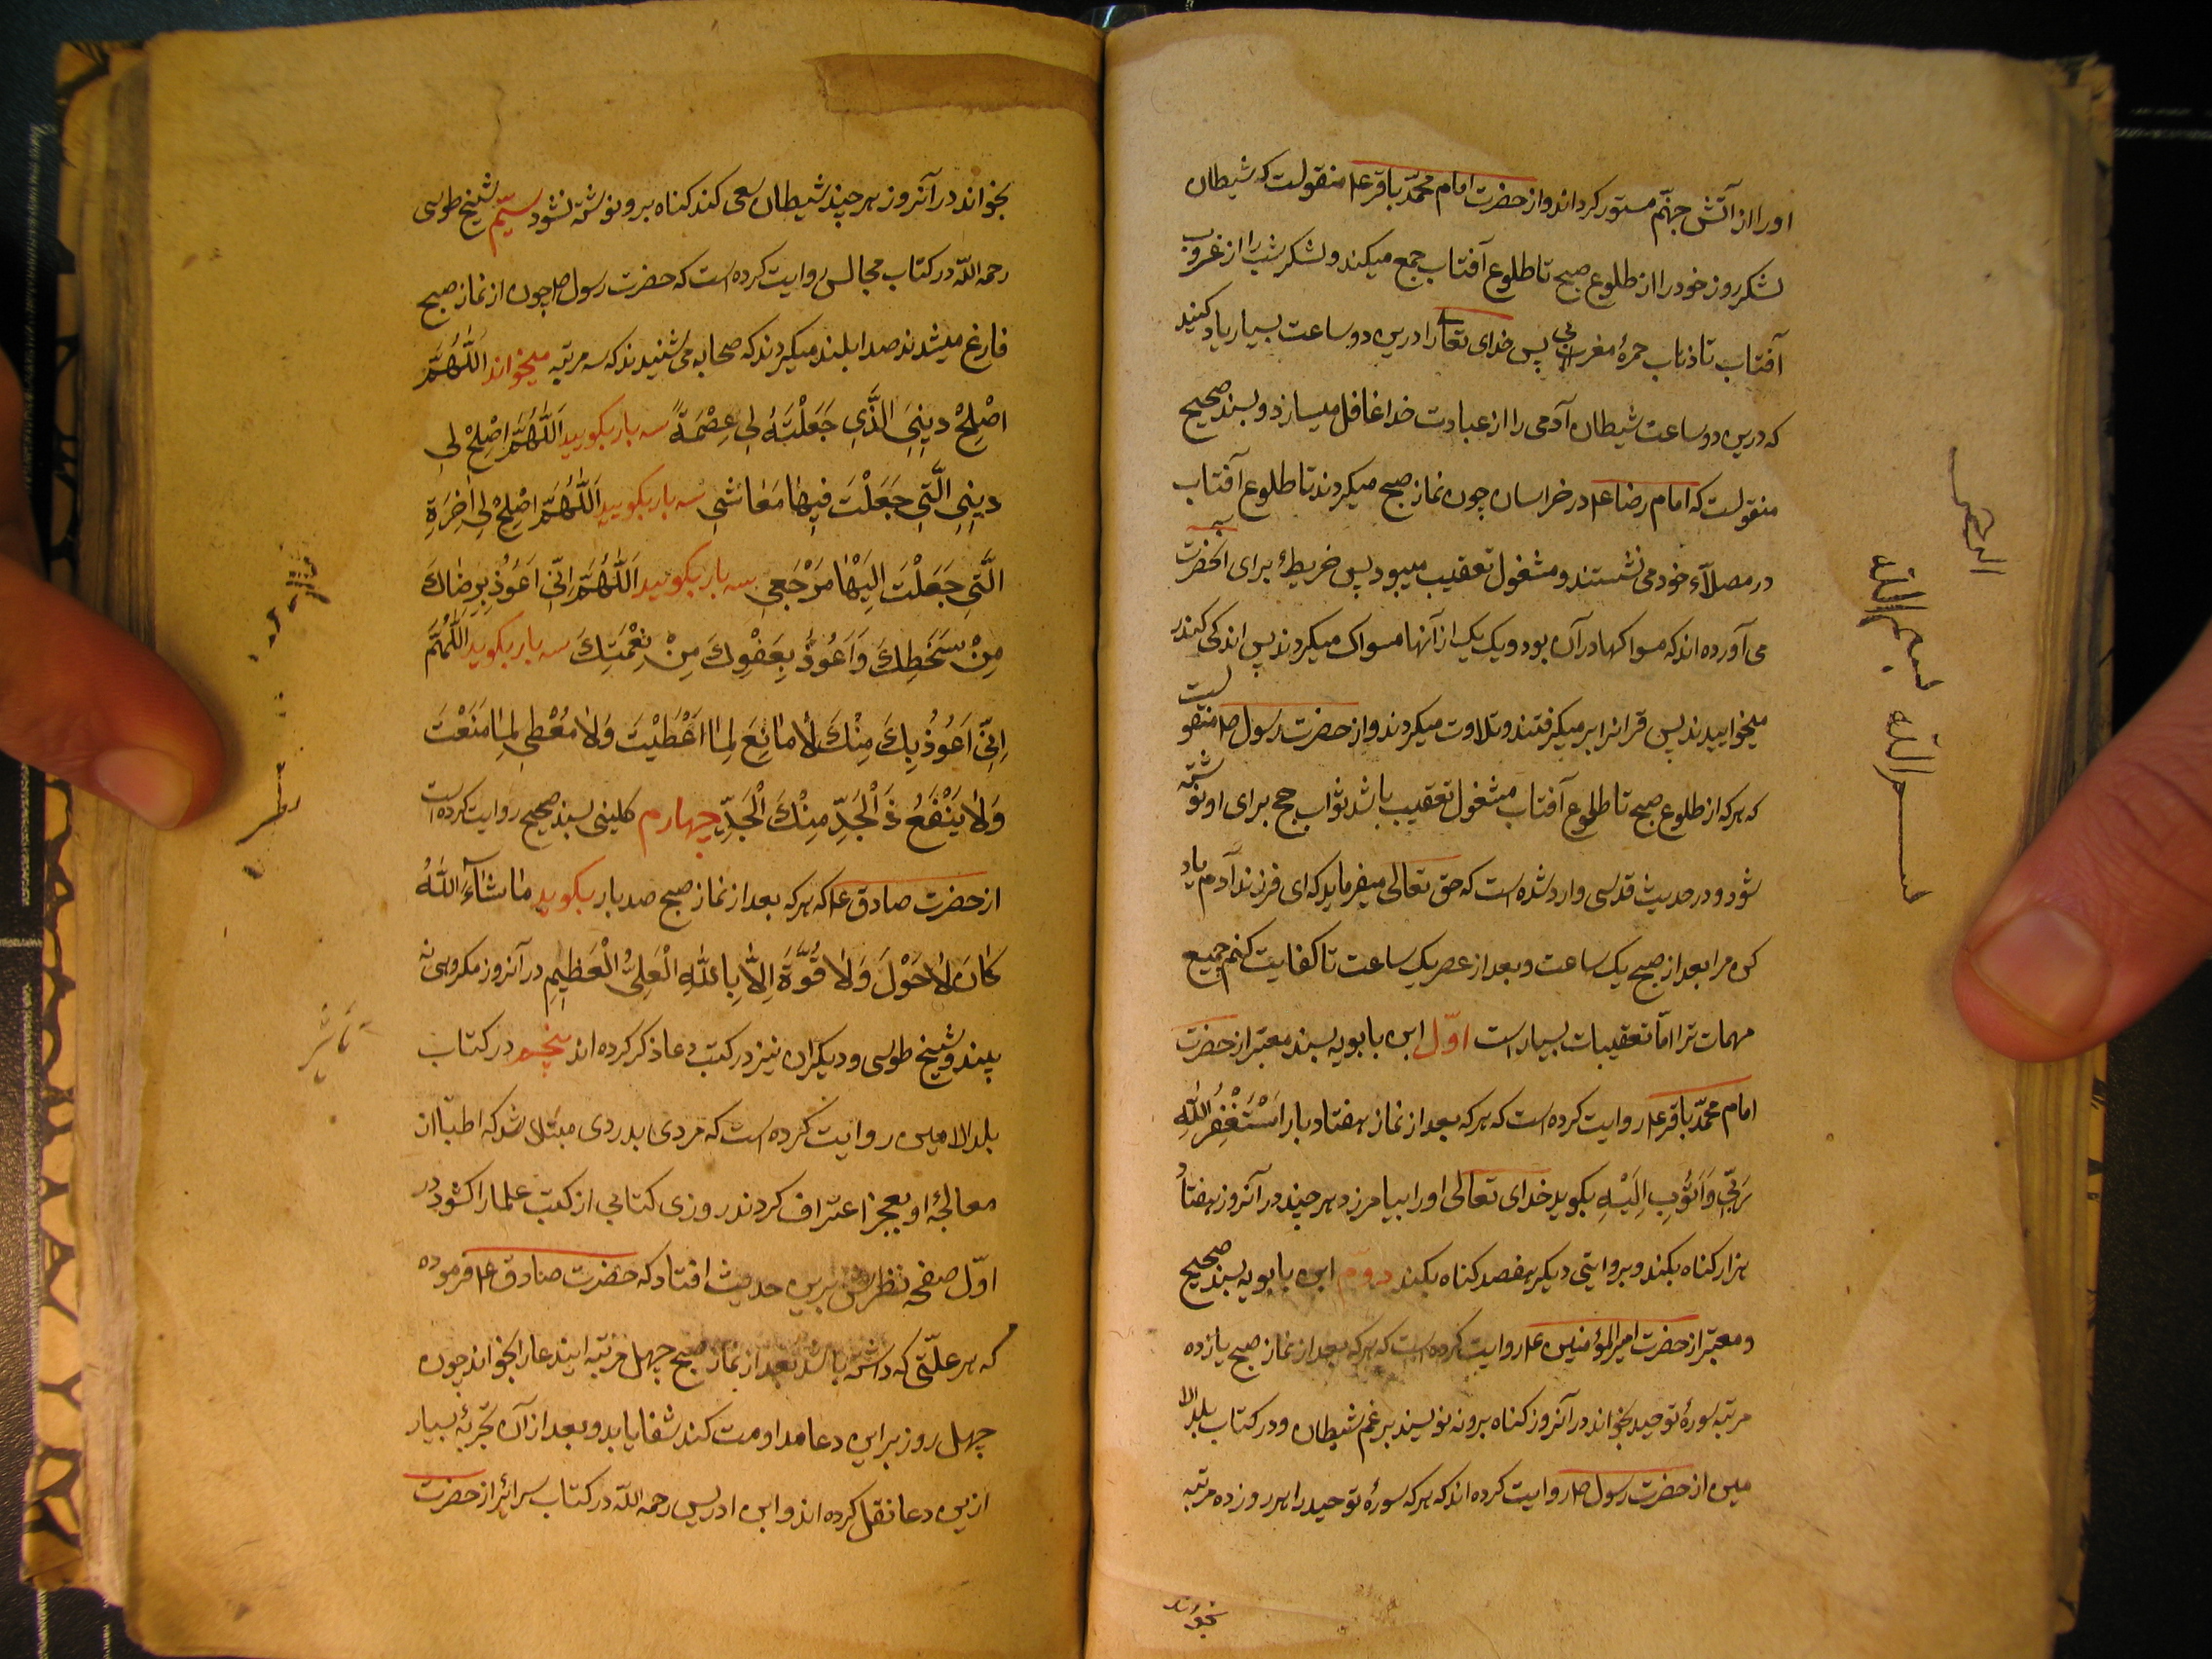 اورا از آتش جهنّم مستور کرداند و از حضرت امام محمّد باقر ع۴ منقولست که شیطان
لشکر روز خود را از طلوع صبح تا طلوع آفتاب جمع میکند و لشکر شب را از غروب
آفتاب تا ذهاب حمرهٔ مغربی پس خدای تعا را درین دو ساعت بسیار یاد کنید
که درین دو ساعت شیطان آدمی را از عبادت خدا غافل میسازد و بسند صحیح
منقولست که امام رضا ع۴ در خراسان چون نماز صبح میکردند تا طلوع آفتاب
در مصلّاء خود می نشستند و مشغول تعقیب میبود پس خریطهٔ برای آنحضرت
می آورده اند که مسواکها در آن بود و یک یک از آنها مسواک میکردند پس اندکی کندر
میخاییدند پس قرانرا برمیکرفتند و تلاوت میکردند و از حضرت رسول ص منقولست
که هر که از طلوع صبح تا طلوع آفتاب مشغول تعقیب باشد ثواب حج برای او نوشته
شود و در حدیث قدسی وارد شده است که حق تعالی میفرماید که ای فرزند آدم یاد
کن مرا بعد از صبح یک ساعت و بعد از عصر یک ساعت تا کفایت کنم جمیع
مهمات ترا امّا تعقیبات بسیار است اوّل ابن بابویه بسند معتبر از حضرت
امام محمّد باقر ع۴ روایت کرده است که هر که بعد از نماز هفتاد بار اَسْتَغْفِرُ اللّٰهِ
رَبّی وَاَتُوْبِ اِلَیْهِ بکوید خدای تعالی اورا بیامرزد هر چند در آنروز هفتاد
هزار کناه بکند و بروایتی دیکر هفصد کناه بکند دوّم ابن بابویه بسند صحیح
و معتبر از حضرت امیر المؤمنین ع۴ روایت کرده است که هر که بعد از نماز صبح یازده
مرتبه سورهٔ توحید بخواند در آنروز کناه برو ننویسند برغم شیطان و در کتاب بلد الا
مین از حضرت رسول ص روایت کرده اند که هر که سورهٔ توحید را هر روز ده مرتبه
بخواند
بخواند در آنروز هر چند شیطان سعی کند کناه برو نوشته نشود سیّم شیخ طوسی
رحمه اللّه در کتاب مجالس روایت کرده است که حضرت رسول ص چون از نماز صبح
فارغ میشدند صدا بلند میکردند که صحابه می شنیدند که سه مرتبه میخواند اَللّٰهُمَّ
اَصْلِحْ دینِیَ الَّذَّیِ جَعَلْتَهُ لِی عِصْمَةً سه بار بکویید اَللّٰهُمَّ اَصْلِحْ لِی
دینِیِ الَّتیِ جَعَلْتَ فیِهٰا مَعٰاشیِ سه بار بکویید اَللّٰهُمَّ اَصْلِحْ لِی اٰخِرَةِ
الَّتیِ جَعَلْتَ اِلَیْهٰا مَرْجَعیِ سه بار بکویید اَللّٰهُمَّ اِنّیِ اَعَوُذُ بِرِضٰاکَ
مِنْ سَخَطِکَ وَاَعَوُذُ بِعَفْوِکَ مِنْ نِقْمَتِکَ سه بار بکوید اَللّٰهُمَّ
اِنّیِ اَعَوُذُ بِکَ مِنْکَ لاٰ مٰانِعَ لِمٰا اَعْطَیْتَ وَلاٰ مُعْطِی لِمٰا مَنَعْتَ
وَلاٰ یَنْفَعُ ذَ الْجَدِّ مِنْکَ الْجَدِّ چهارم کلینی بسند صحیح روایت کرده است
از حضرت صادق ع۴ که هر که بعد از نماز صبح صد بار بکوید مٰا شٰاءَ اللّٰهُ
کٰانَ لاٰ حَوْلَ وَلاٰ قُوَّةَ اِلاّٰ بِاللّٰهِ الْعَلِیُّ الْعَظِیِمِ در آنروز مکروهی نه
بیند و شیخ طوسی و دیکران نیز در کتب دعا ذکر کرده اند پنجم در کتاب
بلد الامین روایت کرده است که مردی بدردی مبتلا شد که اطبّا از
معالجهٔ او بعجز اعتراف کردند روزی کتابی از کتب علما را کشود در
اوّل صفحه نظرش برین حدیث افتاد که حضرت صادق ع۴ فرموده
که هر علّتی که داشته باشد بعد از نماز صبح چهل مرتبه ایندعا را بخواند چون
چهل روز براین دعا مداومت کند شفا یابد و بعد از آن تجربهٔ بسیار
ازین دعا نقل کرده اند و ابن ادریس رحمه اللّه در کتاب سرائر از حضرت